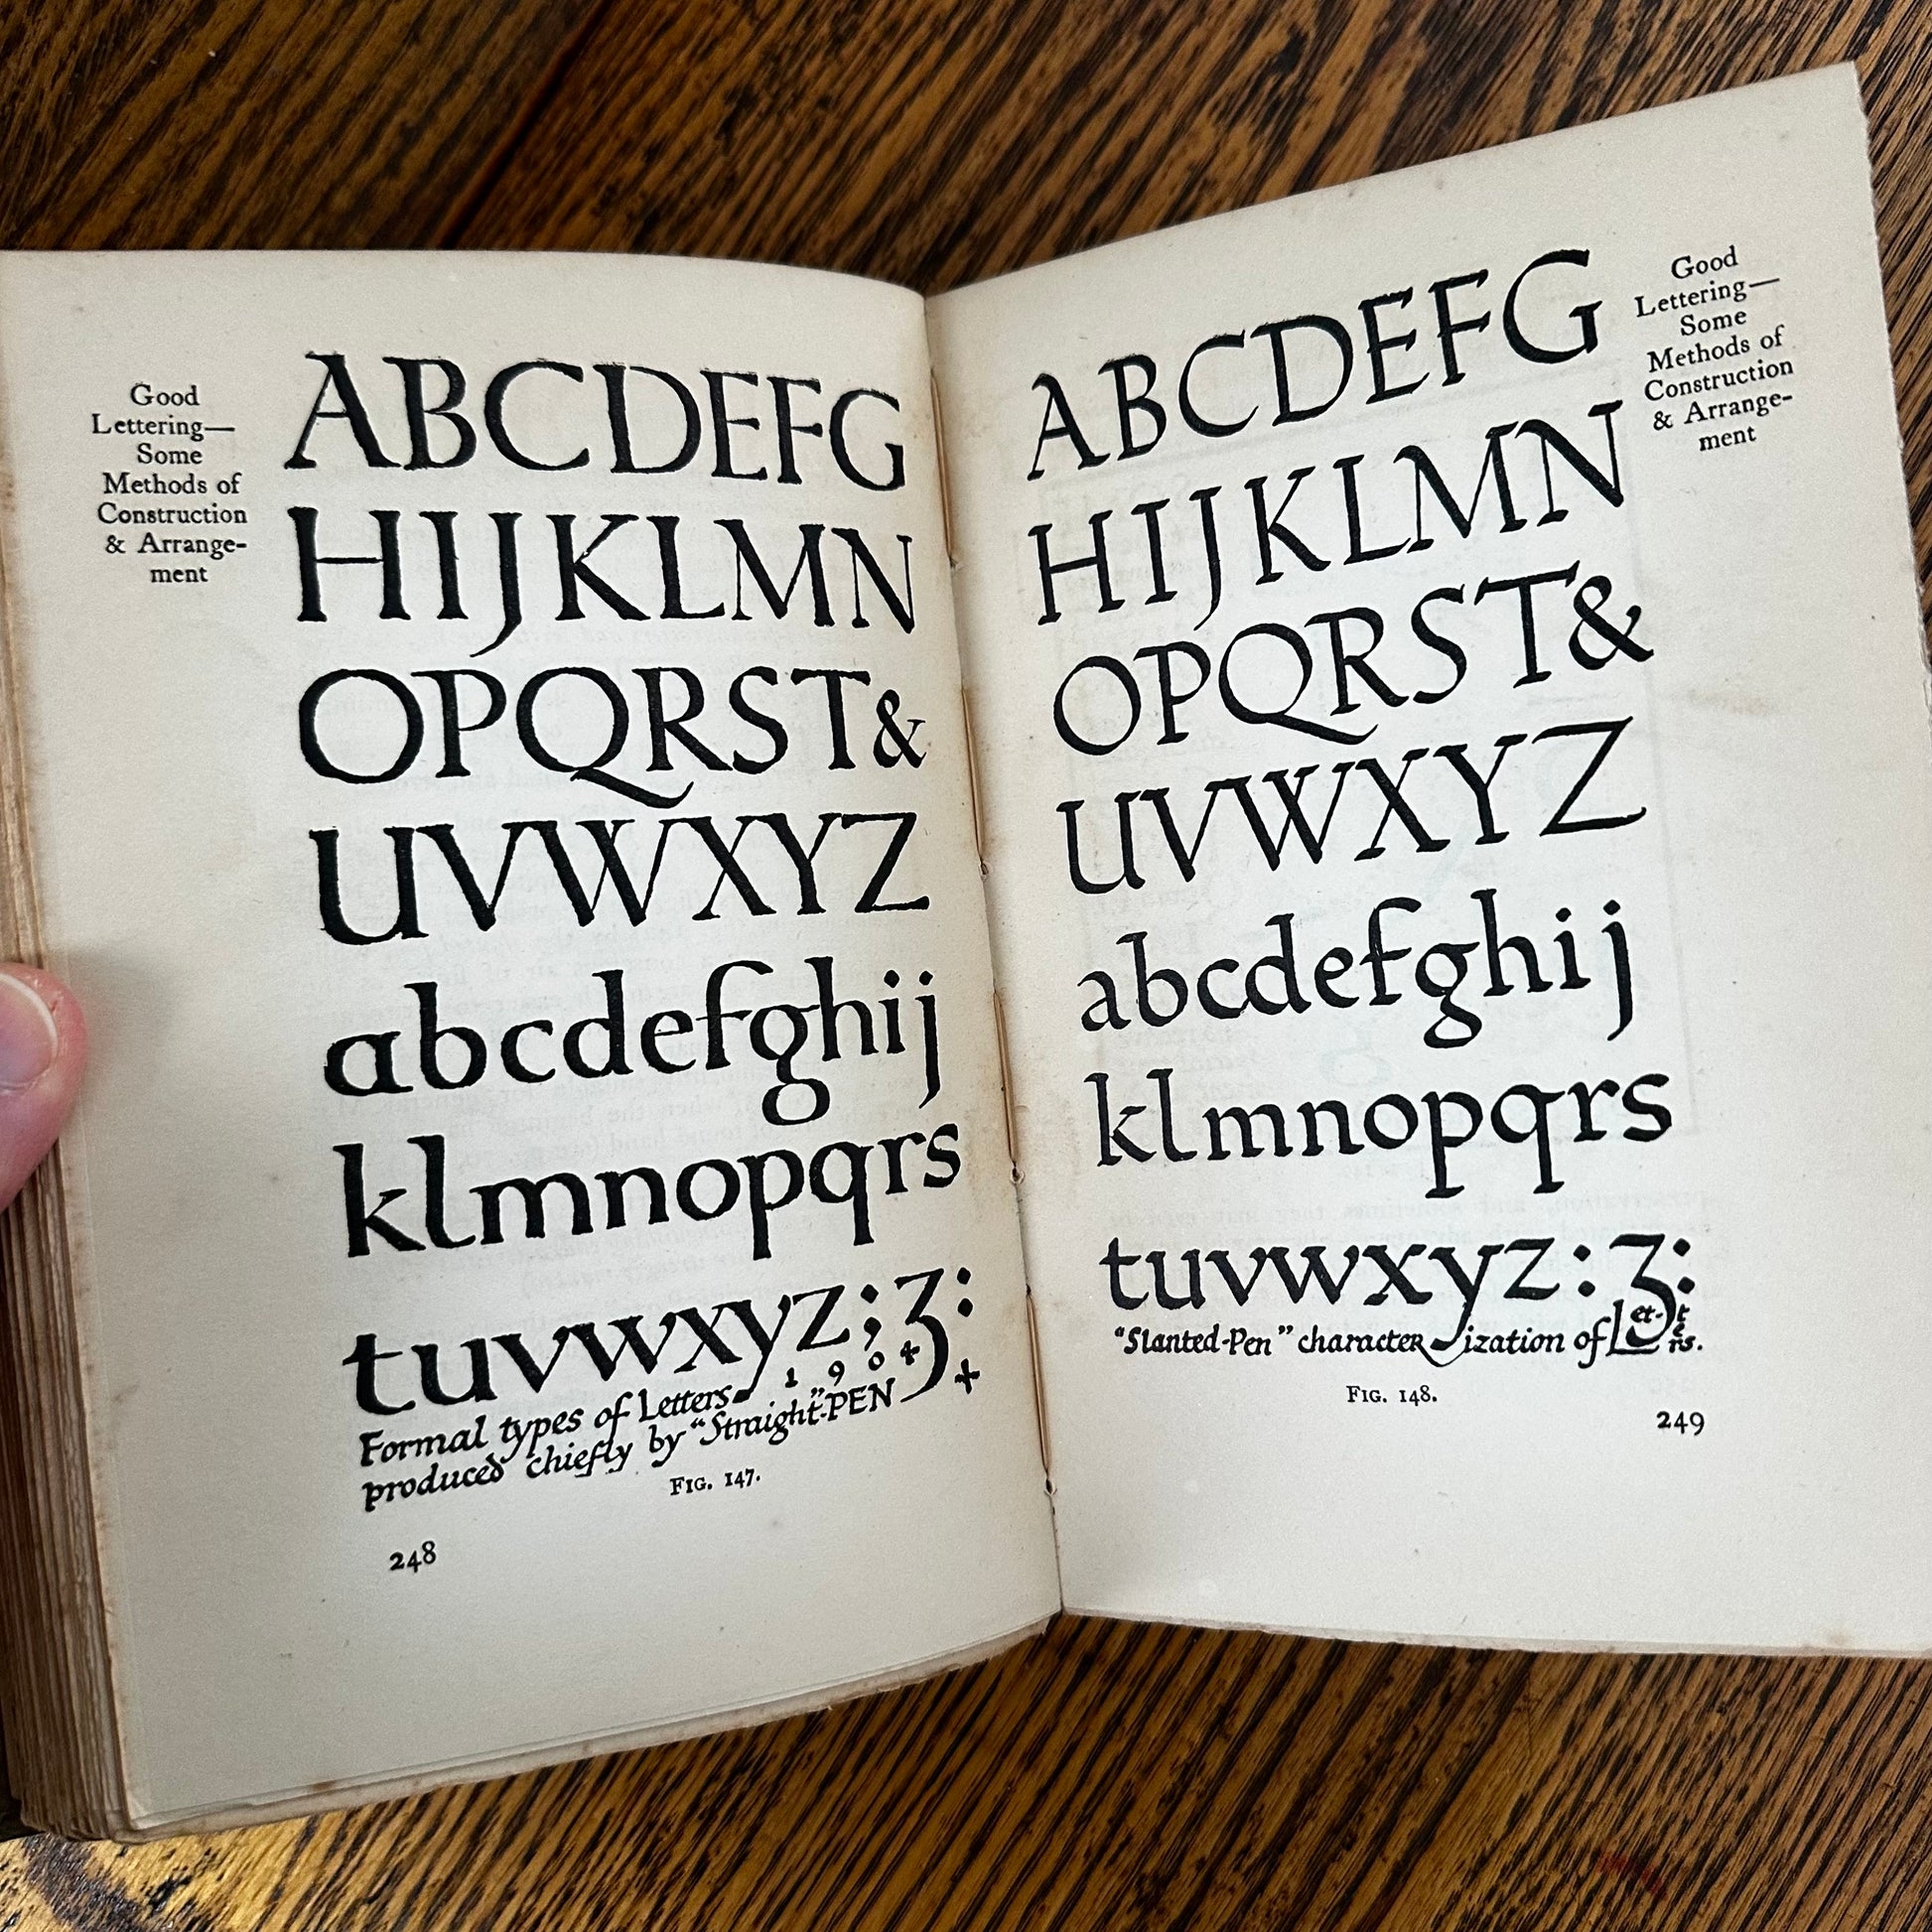 Good
Lettering—
Some
Methods of
Construction
& Arrange-
ment
ABCDEFG
HIJKLMN
OPQRST&
UVWXYZ
abcdefghij
klmnopqrs
tuvwxyz;ʒ:
1904
Formal types of Letters
produced chiefly by "Straight"-PEN
FIG. 147.
248
Good
Lettering—
Some
Methods of
Construction
& Arrange-
ment
ABCDEFG
HIJKLMN
OPQRST&
UVWXYZ
abcdefghij
klmnopqrs
tuvwxyz:ʒ:
"Slanted-Pen" characterization of Letters.
FIG. 148.
249